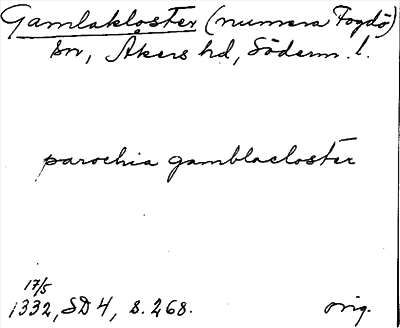 Gamlakloster (numera Fogdö)
sn, Åkers hd, Söderm. l.
parochia gamblacloster
17/5
1332, SD 4, s. 268. orig.